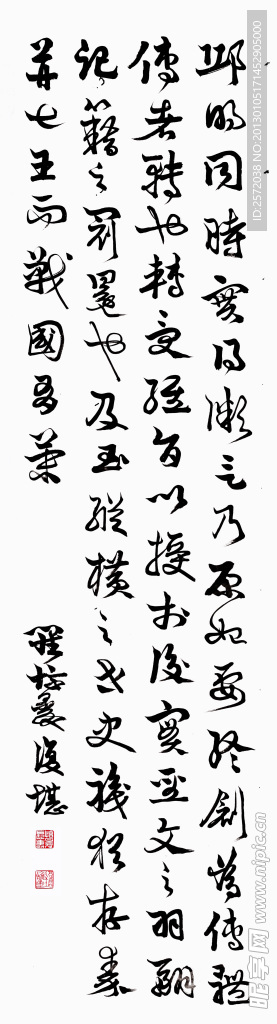 邱明同時實得微言乃原始要終創為傳體
傳者轉也轉受經旨以授於後實聖文之羽翮
記籍之冠冕也及至縱橫之世史職猶存秦
并七王而戰國有策
羅惇㬊復堪
ID:2572038 NO:20130105171452905000
昵图网 www.nipic.com